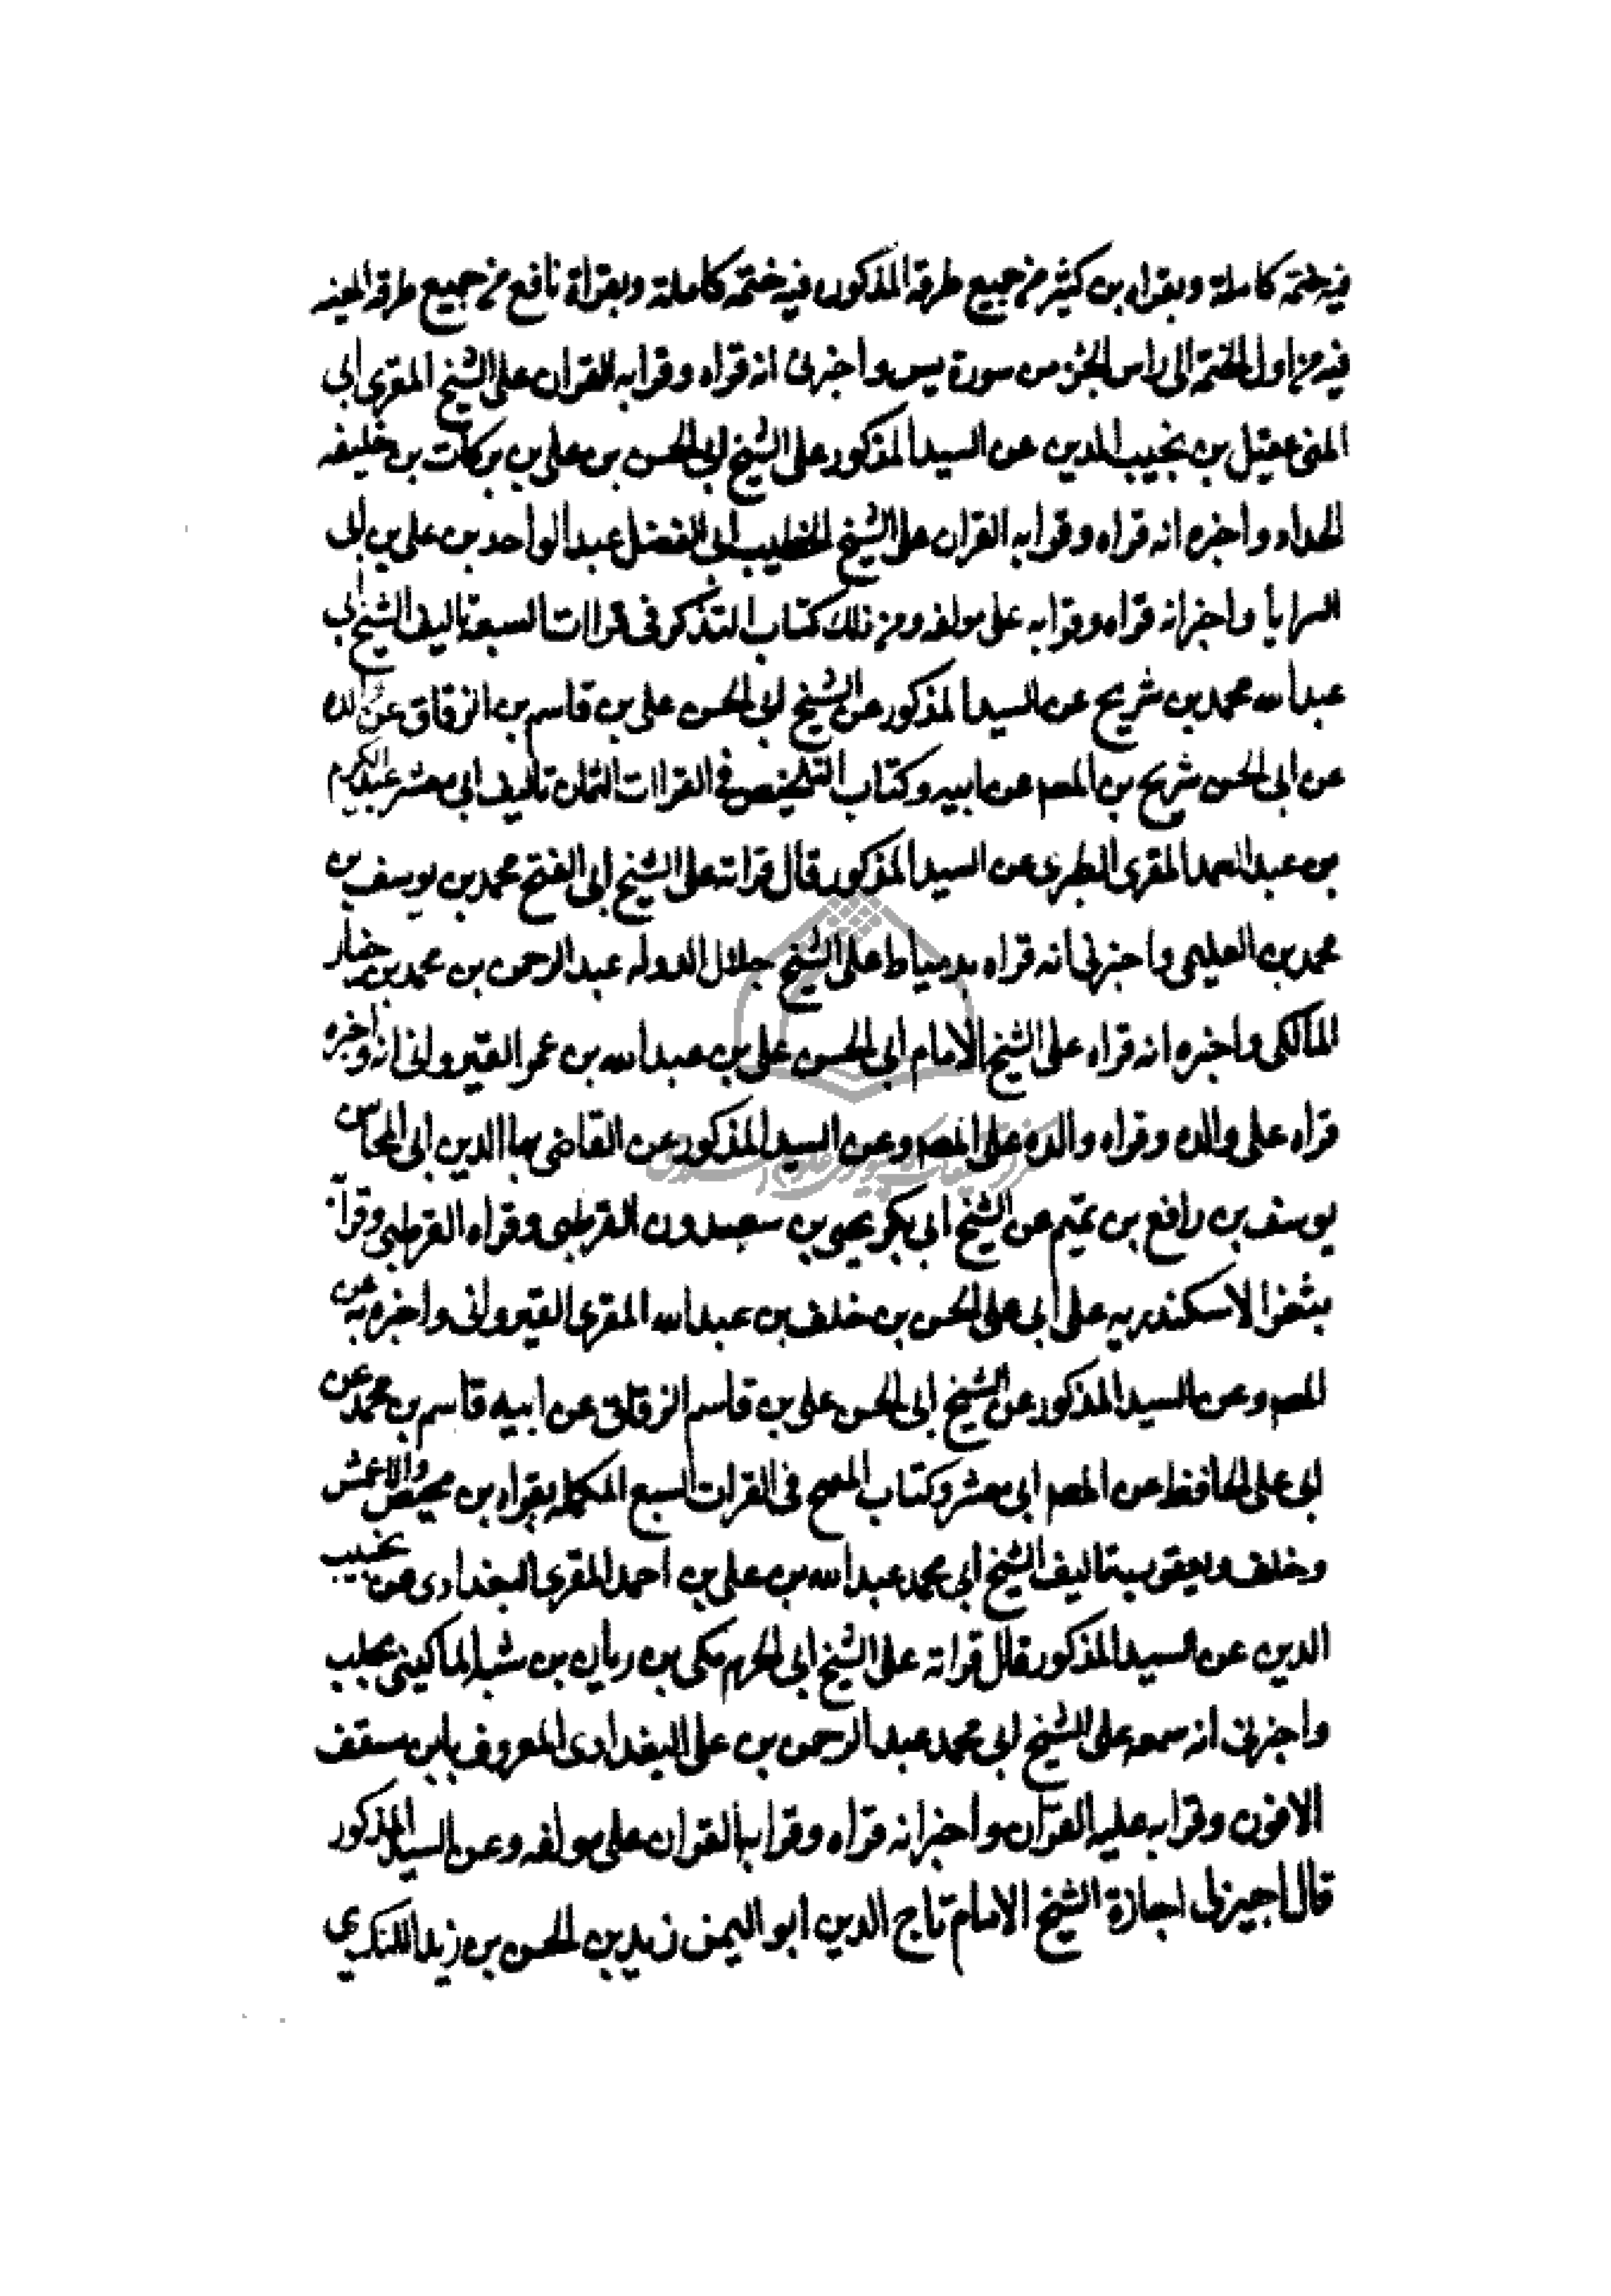 فيه ختمة كاملة وبقراه بن كثير من جميع طرقه المذكوره فيه ختمة كاملة وبقراة نافع من جميع طرقه المعينه
فيه من اول الختمة الى راس الجزء من سورة يس واخبرني انه قراه وقرا به القران على الشيخ المقرى ابى
عقيل بن نجيب الدين عن السيد المذكور على الشيخ ابى الحسن بن على بن بركات بن خليفه
الحداد واخبره انه قراه وقرا به القران على الشيخ الخطيب ابى الفضل عبد الواحد بن على بن ابى
السرايا واخبر انه قراه وقرا به على مولفه ومن ذلك كتاب التذكر فى قراات السبعة تاليف الشيخ ابى
عبد الله محمد بن شريح عن السيد المذكور عن الشيخ ابى الحسن على بن قاسم بن الزقاق عن
عن ابى الحسن شريح بن المصم عن ابيه وكتاب التلخيص فى القراات الثمان تاليف ابى معشر عبد الكريم
بن عبد الصمد المقرى الطبرى عن السيد المذكور قال قراته على الشيخ ابى الفتح محمد بن يوسف بن
محمد بن العليمى واخبرنى انه قراه بدمياط على الشيخ جلال الدوله عبد الرحمن بن محمد بن
المالكى واخبره انه قراه على الشيخ الامام ابى الحسن على بن عبد الله بن عمر القيروانى انه واخبره
قراه على والده وقراه والده على المصم وعن السيد المذكور عن القاضى بها الدين ابى المحاسن
يوسف بن رافع بن تميم عن الشيخ ابى بكر يحيى بن سعيدون القرطبى وقراه القرطبى وقرا به
بثغر الاسكندريه على ابى على الحسن بن خلف بن عبد الله المقرى القيروانى واخبره به عن
المصم وعن السيد المذكور عن الشيخ ابى الحسن على بن قاسم الزقاق عن ابيه قاسم بن محمد عن
ابى على الحافظ عن المصم ابى معشر وكتاب المبهج فى القراات السبع المكمله بقراه بن محيصن والاعمش
وخلف ويعقوب تاليف الشيخ ابى محمد عبد الله بن على بن احمد المقرى البغدادى عن نجيب
الدين عن السيد المذكور قال قراته على الشيخ ابى الحرم مكى بن ريان بن شبه الماكينى بحلب
واخبرنى انه سمعه على الشيخ ابى محمد عبد الرحمن بن على البغدادى المعروف بابن سقف
وقرا به عليه القران واخبر انه قراه وقرا به القران على مولفه وعن السيد المذكور
قال اجيز لى اجازة الشيخ الامام تاج الدين ابو اليمن زيد بن الحسن بن زيد الكندى